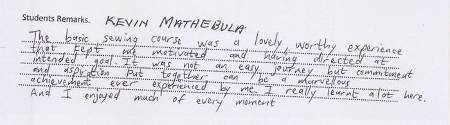 Students Remarks. KEVIN MATHEBULA
The basic sewing course was a lovely, worthy experience
that kept me motivated and having directed at
intended goal. It was not an easy journey but commitment
and aspiration put together can be a marvellous
achievement ever experienced by me. I really learnt alot here.
And I enjoyed much of every moment